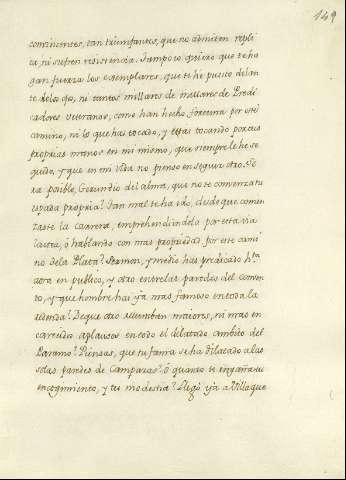 149
convincentes, tan triumfantes, que no admiten repli
ca, ni sufren resistencia. Tampoco quiero que te ha
gan fuerza los exemplares, que te hè puesto delan
te de los ojos, ni tantos millares de millares de Predi
cadores veteranos, como han hecho fortuna por este
camino, ni lo que has tocado, y estas tocando por tus
proprias manos en mi mismo, que siempre le he se
guido, y que en mi vida no pienso en seguir otro. Se
ra posible, Gerundio del alma, que no te convenza tu
espada propria? Tan mal te ha ido, desde que comen
zaste la carrera, emprehendiendola por esta via
lactea, ò hablando con mas propriedad por este cami
no de la Plata? Sermon, y medio has predicado hta
aora en publico, y otro entre las paredes del conven
to, y que hombre hai yà mas famoso en toda la
redonda? De que otro se cuentan maiores, ni mas en
carecidos aplausos en todo el dilatado ambito del
Paramo? Piensas, que tu fama se ha dilatado a las
solas paredes de Campazas? ò quanto te engaña tu
encogimiento, y tu modestia! Llegò yà a Villaque